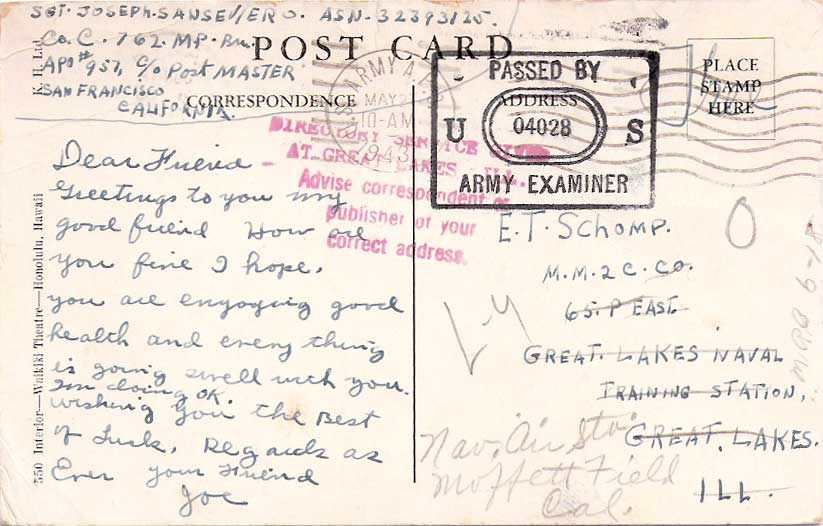 SGT. JOSEPH. SANSEVIERO. ASN. 32393125.
Co. C. 762. MP. Bn.
APO # 957, C/o Post MASTER
SAN FRANCISCO
CALIFORNIA.
POST CARD
CORRESPONDENCE
PLACE
STAMP
HERE
Free
U.S. ARMY
MAY
10-AM
1943
PASSED BY
ADDRESS
U 04028 S
ARMY EXAMINER
DIRECTORY SERVICE GIVEN
AT GREAT LAKES, ILL.
Advise correspondent or
publisher of your
correct address.
Dear Friend -
Greetings to you my
good friend How are
you fine I hope.
you are enyoying good
health and every thing
is going swell with you.
I'm doing OK.
wishing you the Best
of Luck. Regards as
Ever your Friend
Joe
E.T. SCHOMP.
M.M.2C. CO.
65. P EAST.
GREAT. LAKES NAVAL
TRAINING STATION,
GREAT. LAKES.
ILL.
Nav. Air Sta.
Moffett Field
Cal.
O
K. H. Ltd.
550 Interior—Waikiki Theatre—Honolulu, Hawaii